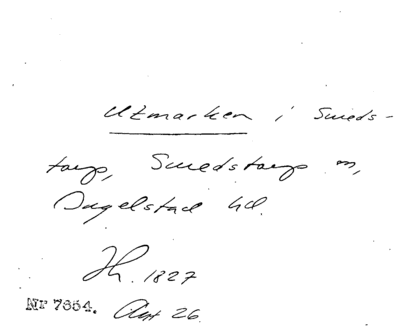 Utmarken i Smeds-
torp, Smedstorps sn,
Ingelstad hd.
Jh. 1827
Nr 7654. Akt 26